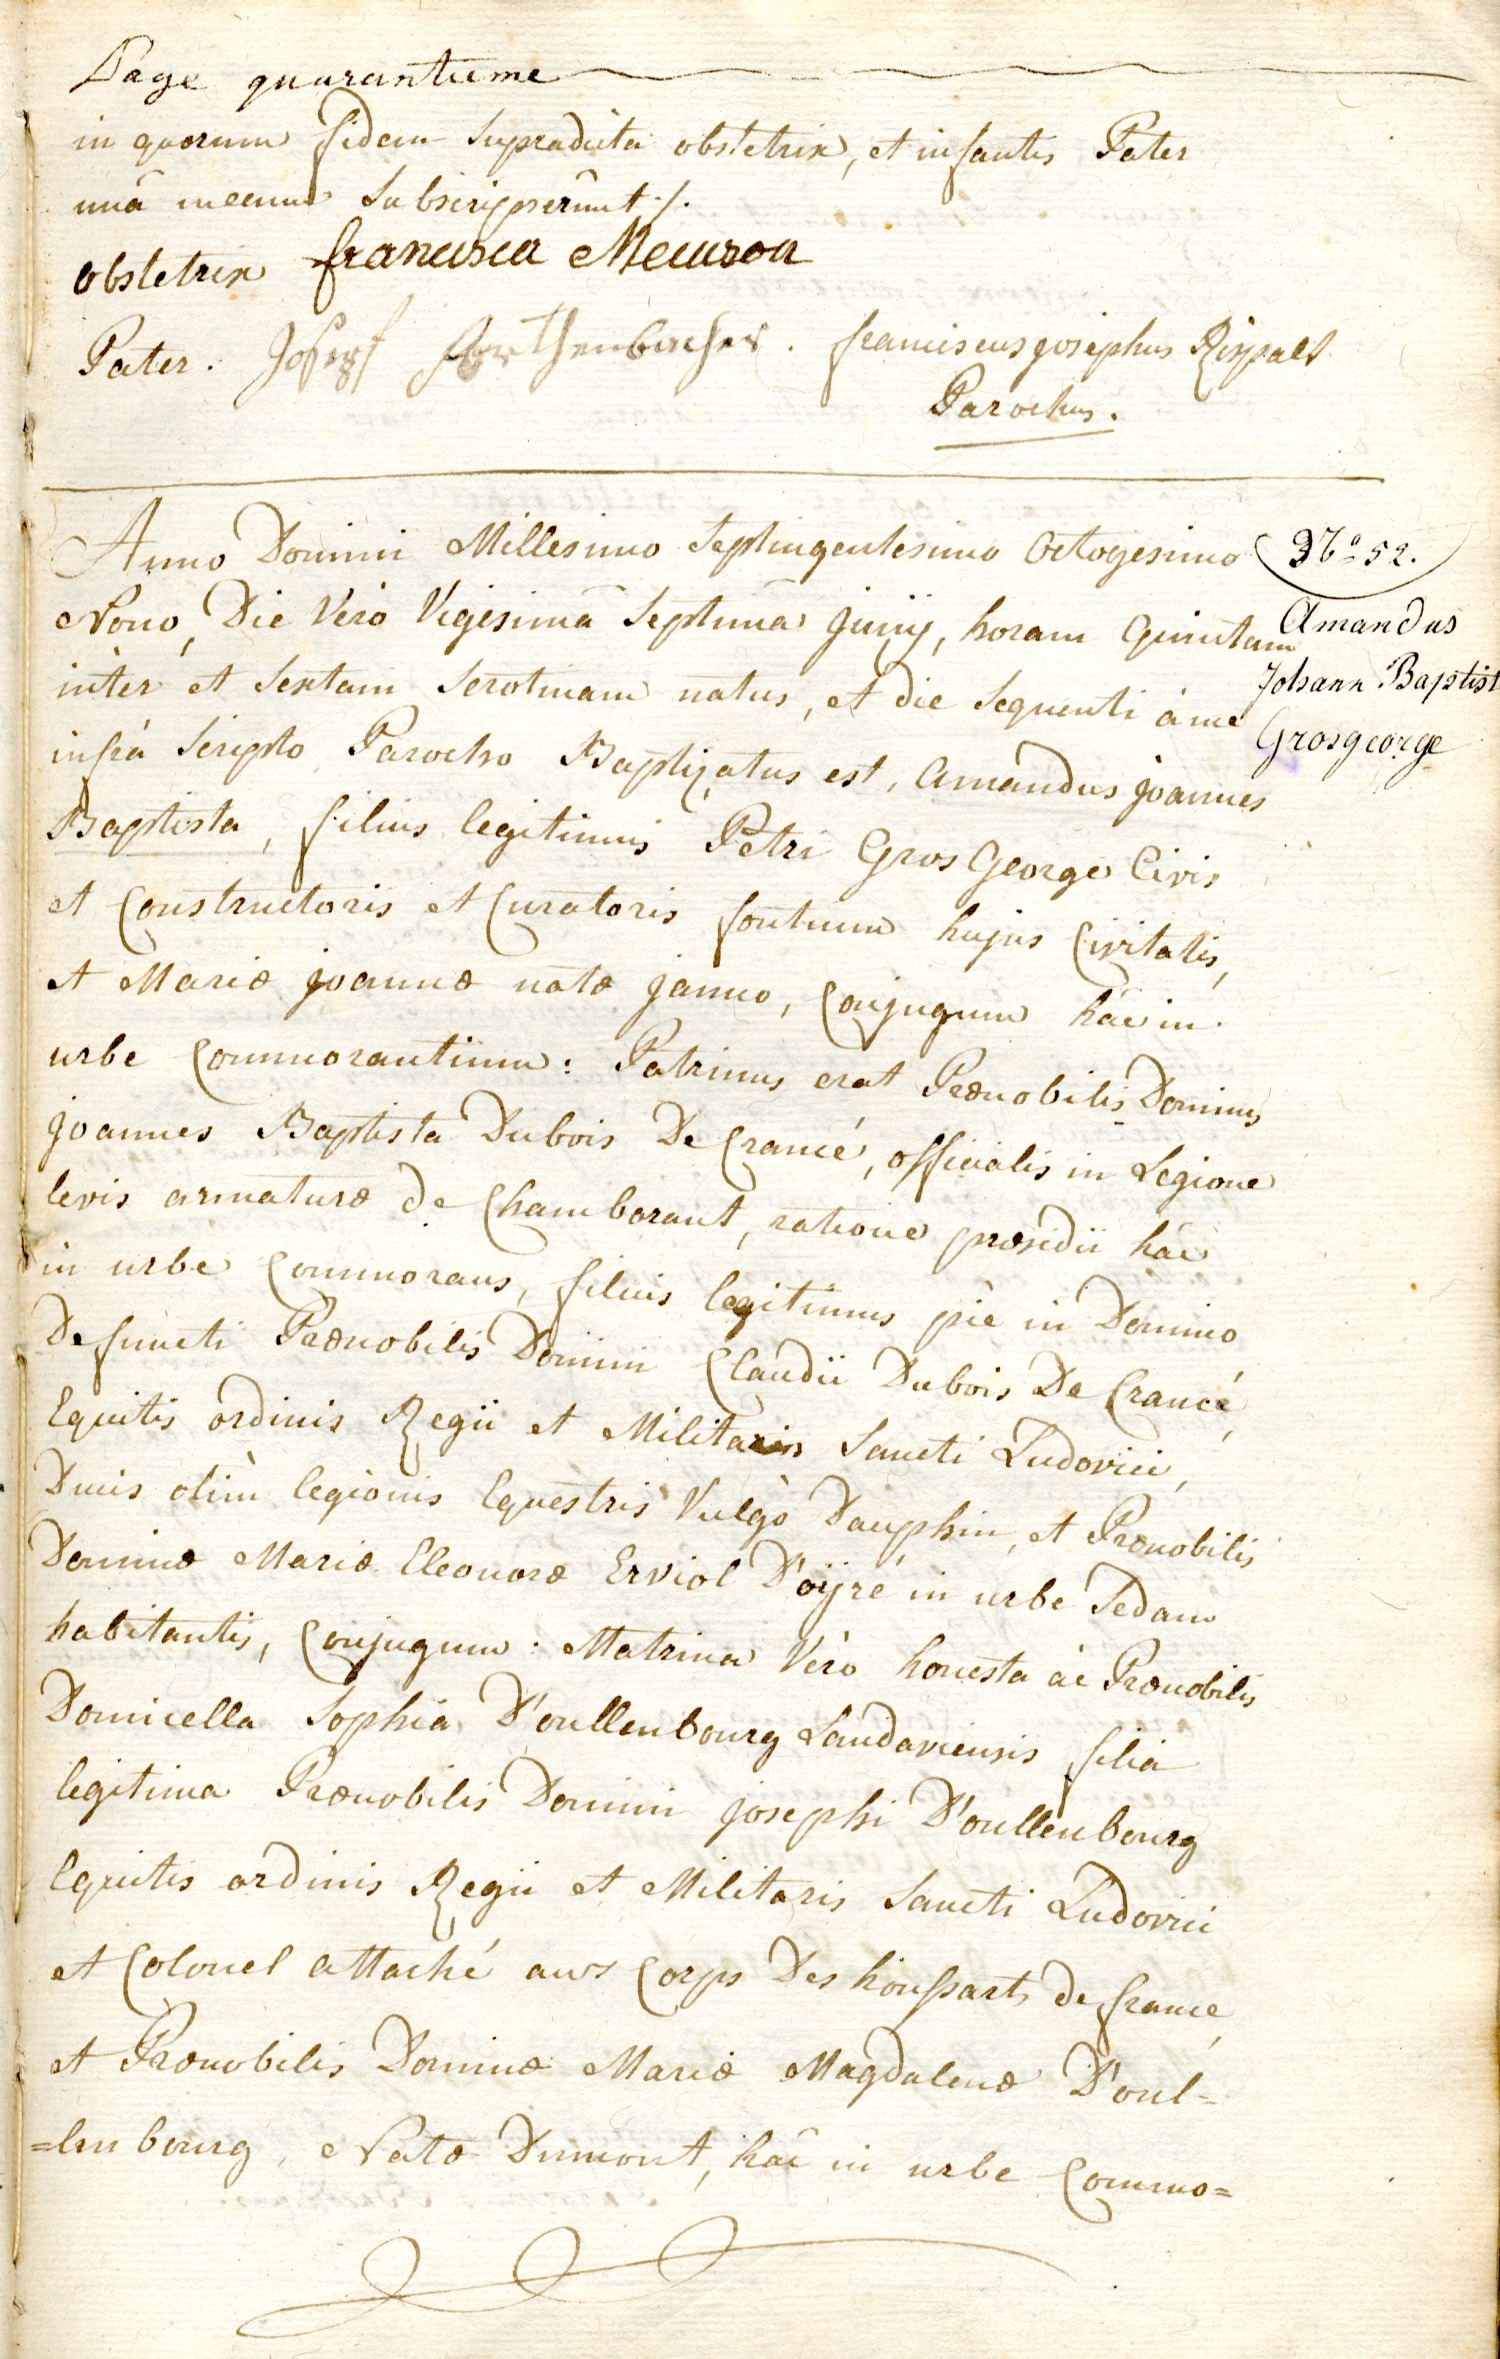 Page quarantieme
in quorum fidem supradicta obstetrix, et infantis Pater
unâ mecum subscripserunt ./.
obstetrix francisca Meuron
Pater. Josepf franciscus josephus Rispals
Parochus.
Anno Domini Millesimo Septingentesimo Octogesimo
Nono, Die Verò Vigesimâ Septimâ junij, horam Quintam
intèr et Sextam Serotinam natus, et die Sequenti à me
infrà Scripto Parocho Baptizatus est, Amandus joannes
Baptista, filius legitimus Petri Gros George Civis
et Constructoris et Curatoris fontium hujus Civitatis,
et Mariæ joannæ natæ janno, Conjugum hâc in
urbe Commorantium: Patrinus erat Prænobilis Dominus
joannes Baptista Dubois De Crancé, officialis in Legione
levis armaturæ de Chamborant, ratione præsidii hâc
in urbe Commorans, filius legitimus piè in Domino
Defuncti Prænobilis Domini Claudii Dubois De Crancé,
Equitis ordinis Regii et Militaris Sancti Ludovici,
Ducis olim legionis Equestris Vulgò Dauphin, et Prænobilis
Dominæ Mariæ Eleonoræ Erviol D'oÿré in urbe Sedan
habitantis, Conjugum: Matrina Verò honesta àc Prænobilis
Domicella Sophia D'oullenbourg Landaviensis filia
legitima Prænobilis Domini josephi D'oullenbourg
Equitis ordinis Regii et Militaris Sancti Ludovici
et Colonel attaché aux Corps Des houssarts de france,
et Prænobilis Dominæ Mariæ Magdalenæ D'oul-
=lenbourg, Natæ Dumont, hâc in urbe Commo=
No 52.
Amandus
Johann Baptist
Grosgeorge